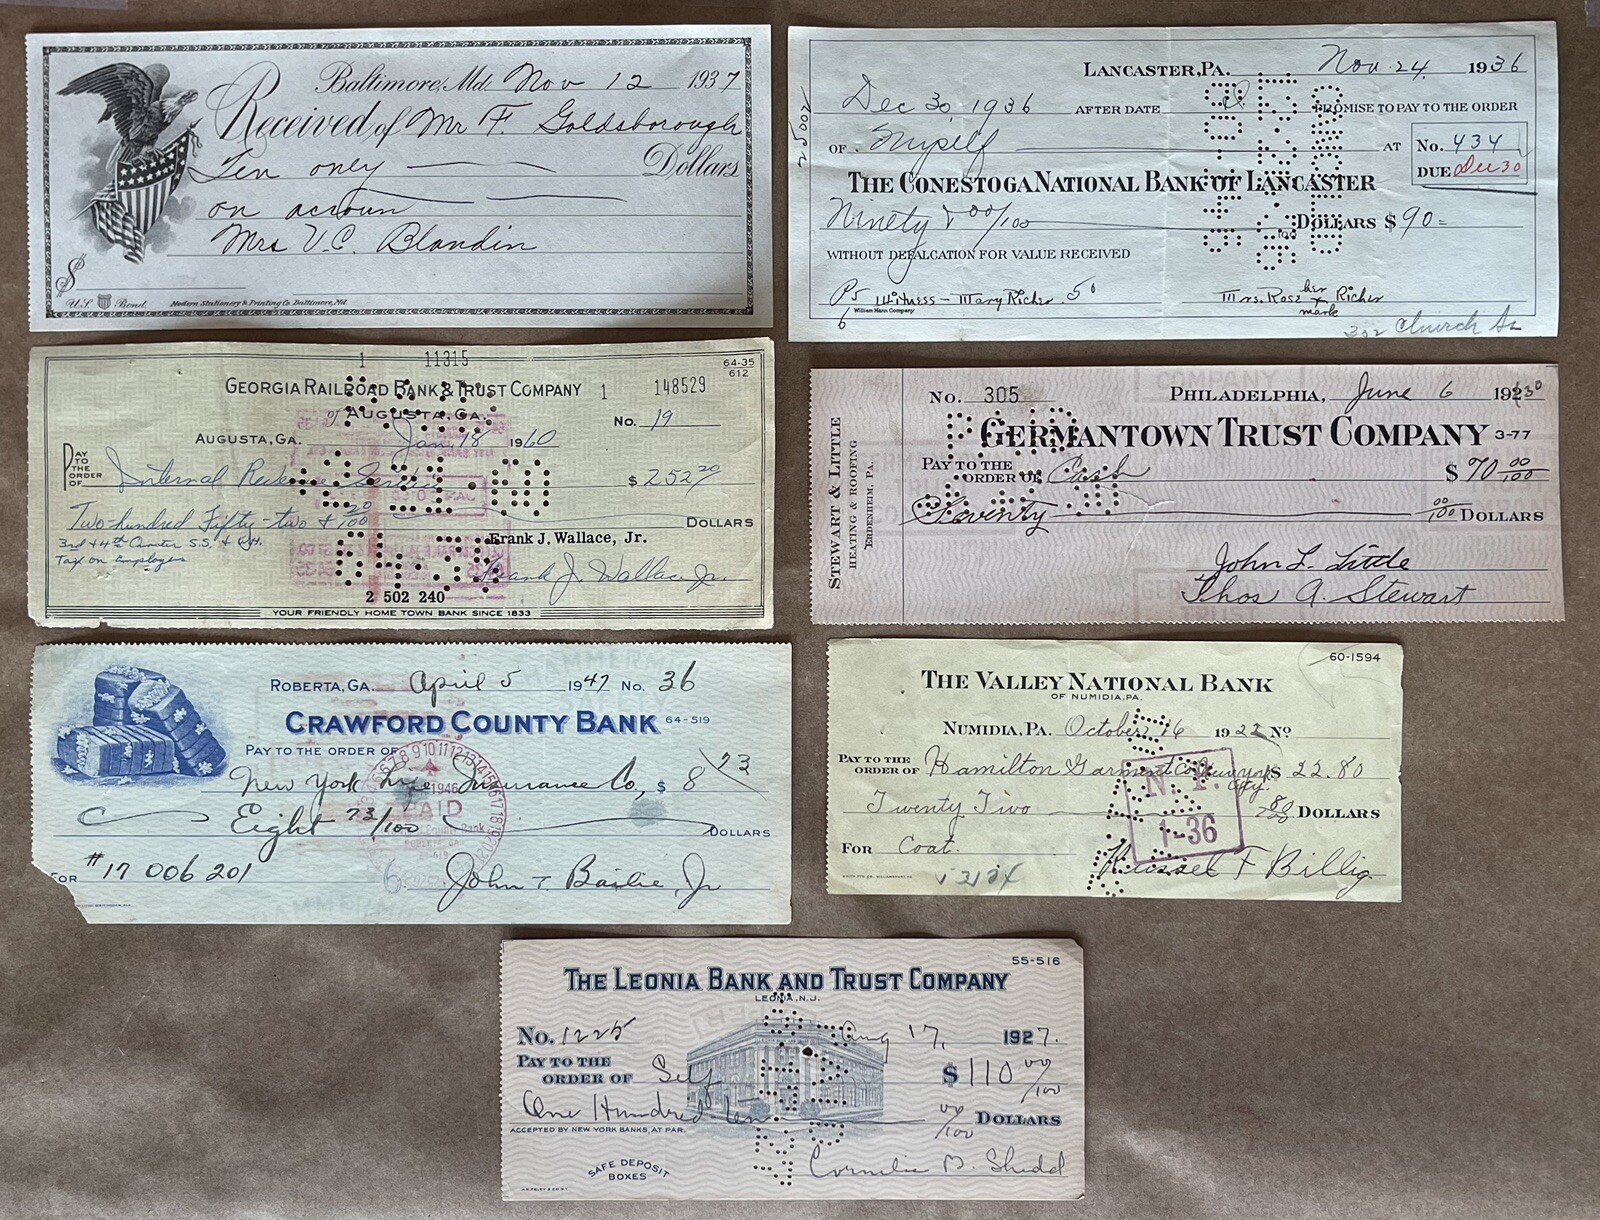 Baltimore, Md. Nov 12 1937
Received of Mr F. Goldsborough
Ten only Dollars
on accoun
Mrs V. C. Blandin
$
U.S. Bond. Modern Stationery & Printing Co. Baltimore, Md.
LANCASTER, PA. Nov. 24, 1936
Dec 30, 1936 AFTER DATE I PROMISE TO PAY TO THE ORDER
OF Myself AT
No. 434
DUE Dec 30
THE CONESTOGA NATIONAL BANK OF LANCASTER
Ninety & 00/100 DOLLARS $ 90=
WITHOUT DEFALCATION FOR VALUE RECEIVED
Witness - Mary Richer. Mrs. Rose her x mark Richer
William Mann Company
302 Church St
1 11315
64-35
612
GEORGIA RAILROAD BANK & TRUST COMPANY 1 148529
of AUGUSTA, GA.
No. 19
AUGUSTA, GA. Jan 18 1960
PAY TO THE ORDER OF Internal Revenue Service $ 252 20
Two-hundred Fifty-two & 20/100 DOLLARS
3rd & 4th Quarter S.S. & W.H.
Tax on Employees
Frank J. Wallace, Jr.
Frank J. Wallace Jr.
2 502 240
YOUR FRIENDLY HOME TOWN BANK SINCE 1833
STEWART & LITTLE
HEATING & ROOFING
ERDENHEIM, PA.
No. 305 PHILADELPHIA, June 6 192 30
GERMANTOWN TRUST COMPANY 3-77
PAY TO THE ORDER OF Cash $ 70 00/100
Seventy 00/100 DOLLARS
John L. Little
Thos A. Stewart
ROBERTA, GA. April 5 1947 No. 36
CRAWFORD COUNTY BANK 64-519
PAY TO THE ORDER OF
New York Life Insurance Co., $ 8 73
Eight 73/100 DOLLARS
PAID
FOR #17 006 201
John T Bailie, Jr
60-1594
THE VALLEY NATIONAL BANK
OF NUMIDIA, PA.
NUMIDIA, PA. October 16 1922 No
PAY TO THE ORDER OF Hamilton Garment Co New York City $ 22.80
Twenty Two 80/100 DOLLARS
N. P.
1-36
FOR Coat.
Russel F Billig
55-516
THE LEONIA BANK AND TRUST COMPANY
LEONIA, N.J.
No. 1225 Aug 17, 1927.
PAY TO THE ORDER OF Self $ 110 00/100
One Hundred ten 00/100 DOLLARS
ACCEPTED BY NEW YORK BANKS, AT PAR.
SAFE DEPOSIT
BOXES
Cornelia D. Shedd